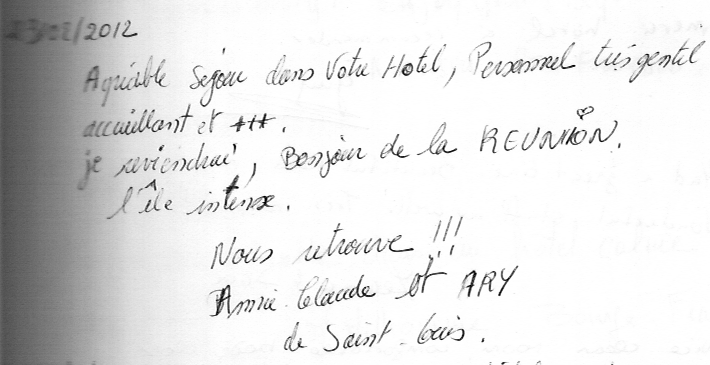 /2012
Agréable Séjour dans Votre Hotel, Personnel très gentil
accueillant et +++.
je reviendrai, Bonjour de la REUNION.
l'île intense.
Nous retrouve !!!
Annie-Claude et ARY
de Saint-Louis.